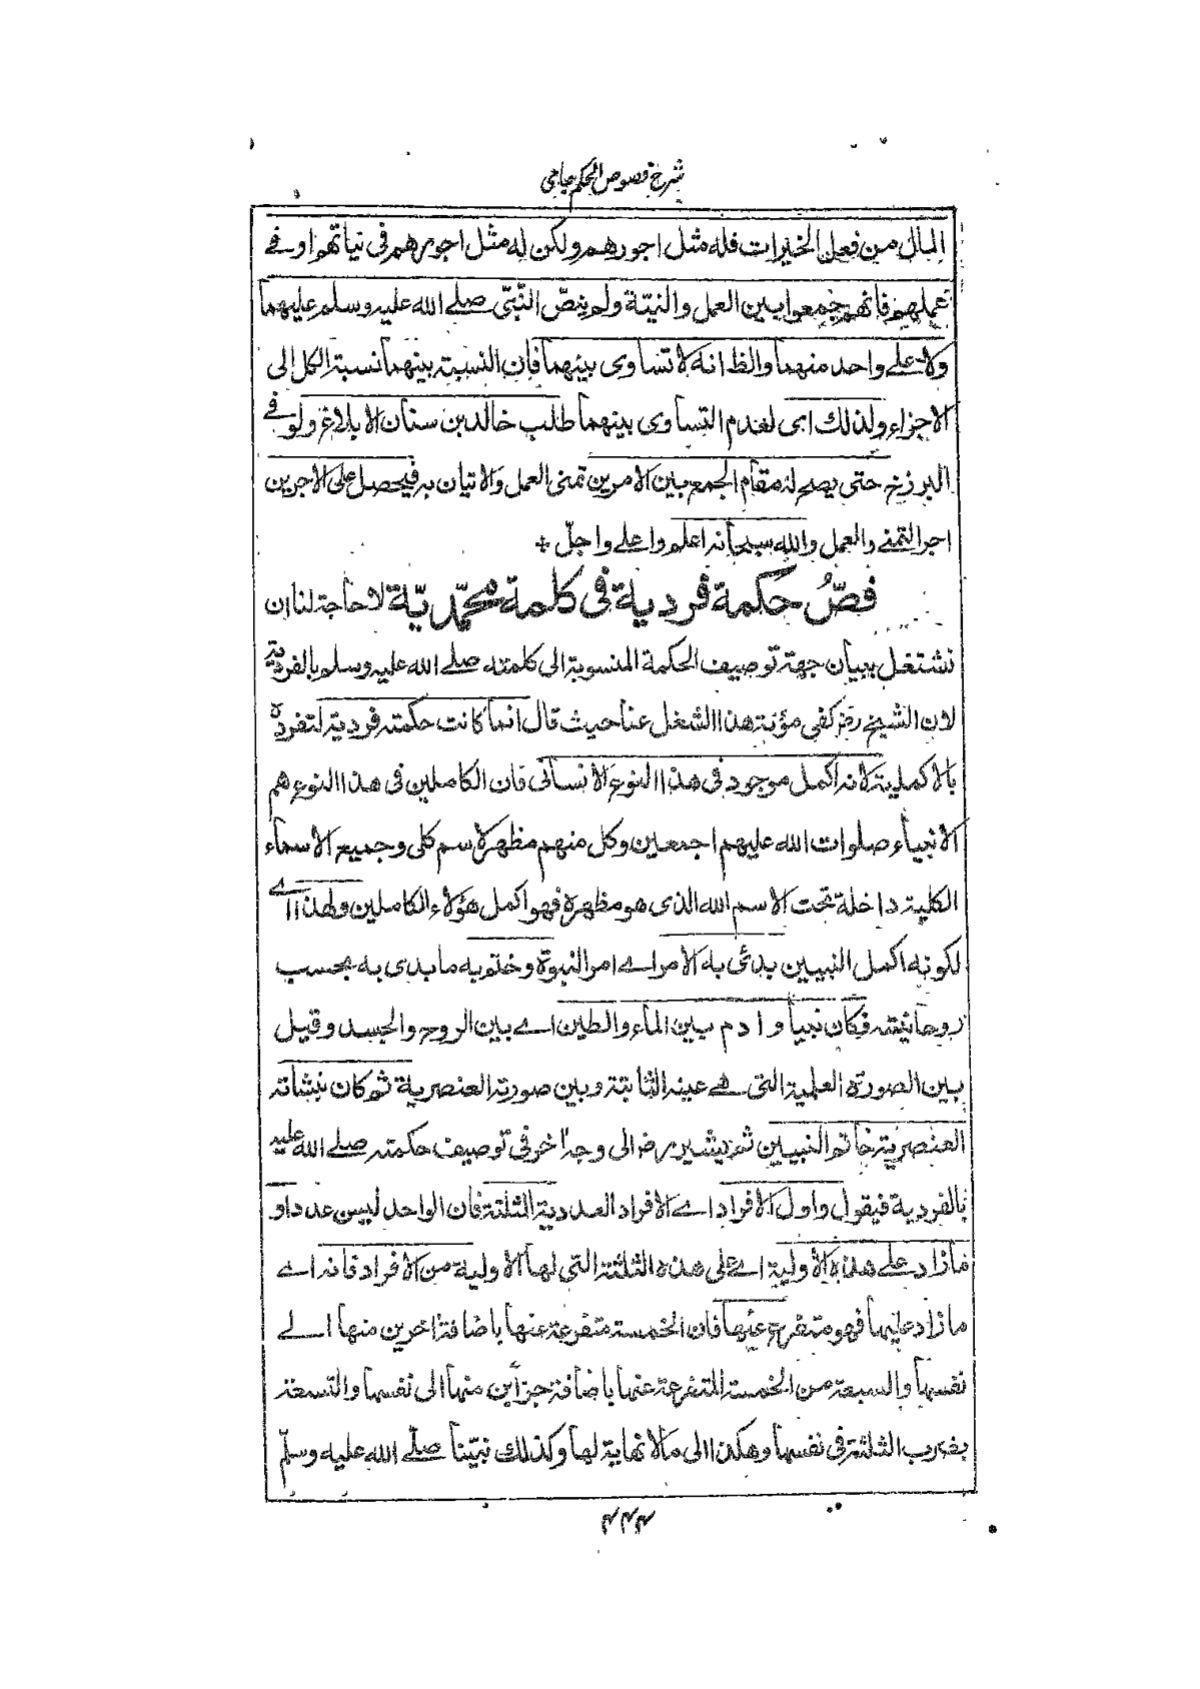 شرح فصوص الحكم جامي
المال من فعل الخيرات فله مثل اجورهم ولكن له مثل اجورهم فى نياتهم او فے
عملهم فانهم جمعوا بين العمل والنية ولم ينصّ النّبىّ صلے الله عليه وسلم عليهما
ولا علے واحد منهما والظ انه لا تساوى بينهما فان النسبة بينهما نسبة الكل الى
الاجزاء ولذلك اى لعدم التساوى بينهما طلب خالد بن سنان الابلاغ ولو فے
البرزخ حتى يصح له مقام الجمع بين الامرين تمنى العمل والاتيان به فيحصل على الاجرين
اجر التمنے والعمل والله سبحانه اعلم واعلے واجلّ +
فصّ حكمة فردية فى كلمة محمّديّة لا حاجة لنا ان
نشتغل ببيان جهة توصيف الحكمة المنسوبة الى كلمته صلے الله عليه وسلم بالفردية
لان الشيخ رضـ كفى مؤنة هذا الشغل عنا حيث قال انما كانت حكمته فردية لتفرده
بالاكملية لانه اكمل موجود فى هذا النوع الانسانى فان الكاملين فى هذا النوع هم
الانبياء صلوات الله عليهم اجمعين وكل منهم مظهر لاسم كلى وجميع الاسماء
الكلية داخلة تحت الاسم الله الذى هو مظهره فهو اكمل هؤلاء الكاملين ولهذا اے
لكونه اكمل النبيين بدئ به الامر اے امر النبوة وختم به ما بدى به بحسب
روحانيته فكان نبيا و ادم بين الماء والطين اے بين الروح والجسد وقيل
بين الصورة العلمية التى هے عينه الثابتة وبين صورته العنصرية ثم كان بنشاته
العنصرية خاتم النبيين ثم يشير رضـ الى وجه اخر فى توصيف حكمته صلے الله عليه
بالفردية فيقول واول الافراد اے الافراد العددية الثلثة فان الواحد ليس عدد او
مازاد علے هذه الاولية اے على هذه الثلثة التى لها الاولية من الافراد فانه اے
ما زاد عليها فهو متفرع عنها فان الخمسة متفرعة عنها باضافة اخرين منها الے
نفسها والسبعة من الخمسة المتفرعة عنها باضافة جزأين منها الى نفسها والتسعة
بضرب الثلثة فى نفسها وهكذا الى مالا نهاية لها وكذلك نبيّنا صلّے الله عليه وسلّم